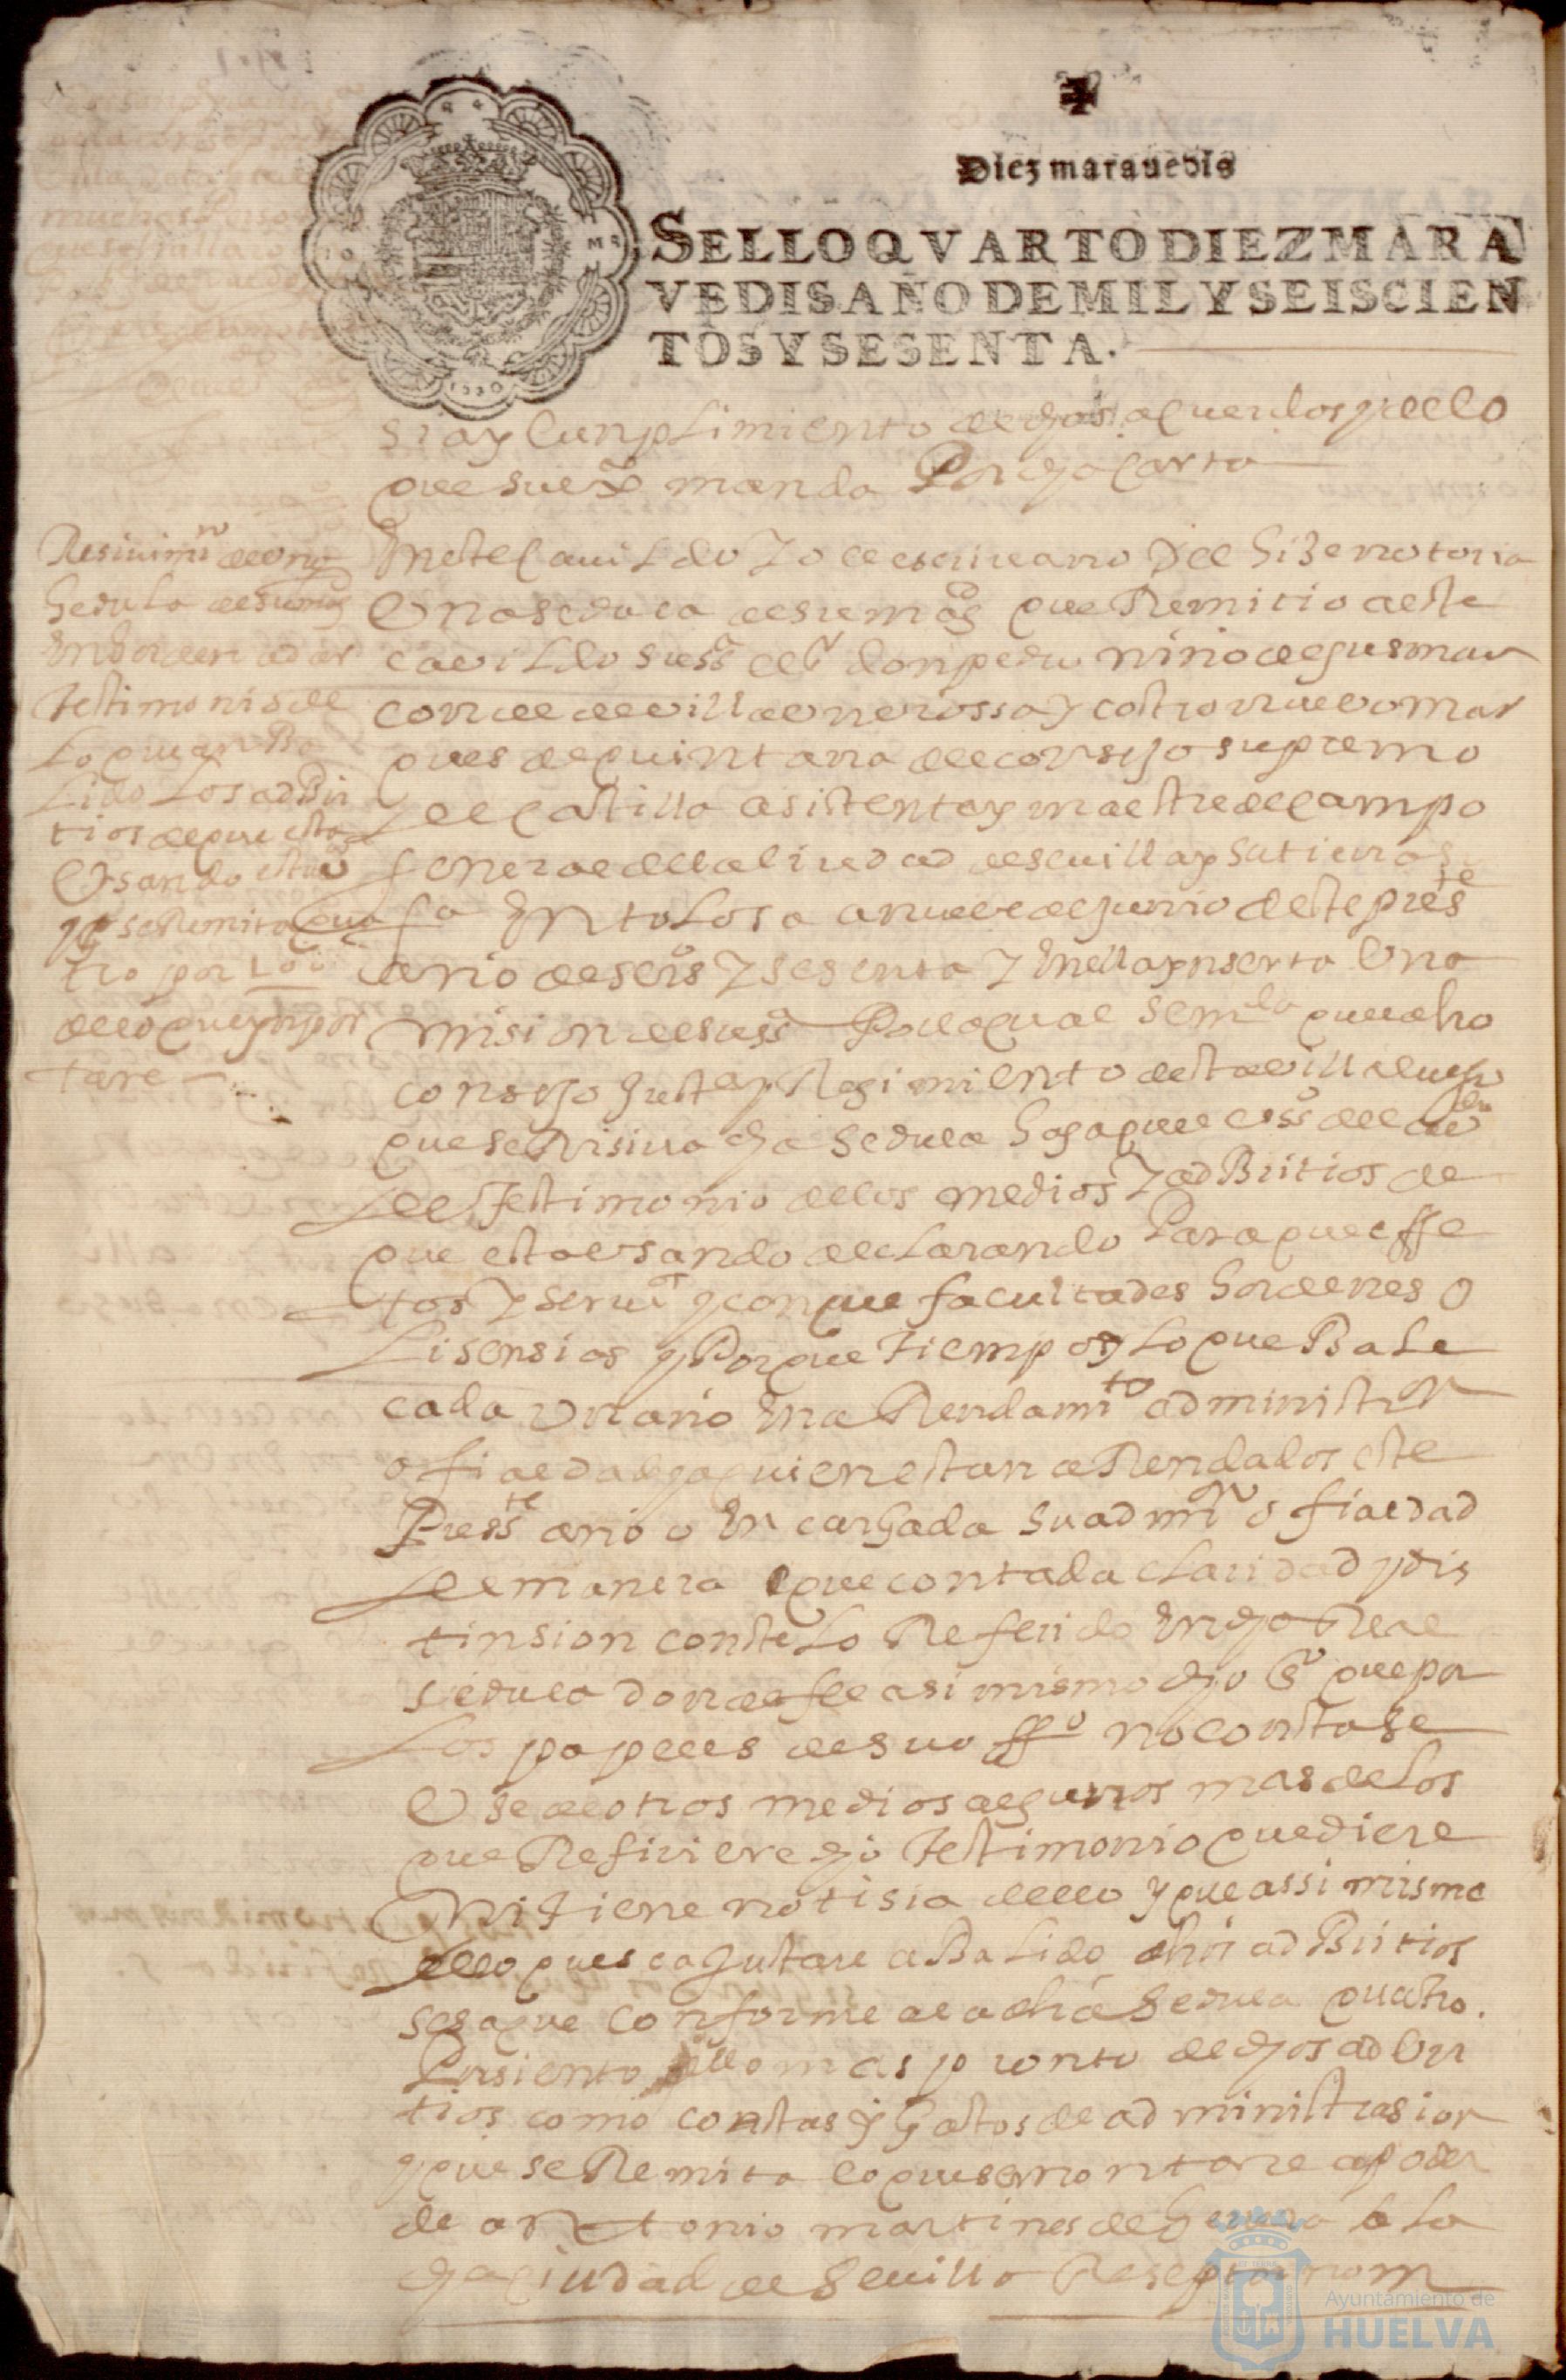 Diez marauedis
SELLO QVARTO DIEZ MARA
VEDIS AÑO DE MIL Y SEISCIEN
TOS Y SESENTA.
sia y Cunplimiento de dhos acuerdos y de lo
que su exª manda Por dha carta
Resiuimº de una
Sedula de su magd
En Horden a dar
testimonio de
Lo que an Ba
Lido Los adBri
tios de que esta
Usando esta vª
y se Remita qua
tro por 100
de lo que ynpor
tare
En este Cauildo Yo el escriuano del Hize notoria
Una sedula de su magd que Remitio a este
cauildo su ssª el sr don pedro niño de gusman
conde de uillaunbrossa y castronueuo mar
ques de quintana del consejo supremo
de Castilla asistente y maestre de Campo
general de la ciudad de seuilla y su tierra
fha En toLosa a nueue de junio deste preste
año de seisº y sesenta y En ella ynserta Una
mision de su ssª Por la qual se mda que dho
consejo Justª y Regimiento desta uilla luego
que se Resiua dha Sedula Haga que el essº del cauildo
de testimonio de los medios y adBritios de
que esta usando declarando Para que effe
tos y seruiº y con que facultades Hordenes o
Lisensias y Por que tiempo y Lo que BaLe
cada un año En aRendamto administron
o fialdad y a quien estan aRendados este
Presste año o En cargada su admon o fialdad
de manera que con toda claridad y dis
tinsion conste Lo Referido En dha Real
sedula donde fee asi mismo dho essº que por
Los papeles de su offº no constase
Use de otros medios algunos mas de Los
que Refiriere dho testimonio que diere
Ni tiene notisia dello y que assi mismo
de lo que se ajustare a BaLido dhos adBritios
se saque conforme a la dha Sedula quatro
Por siento de lo mas pronto de dhos adbri
tios como costas y Gastos de administrasion
y que se Remita lo que se montare a poder
de antonio martines de a La
dha ciudad de Seuilla
Ayuntamiento de
HUELVA